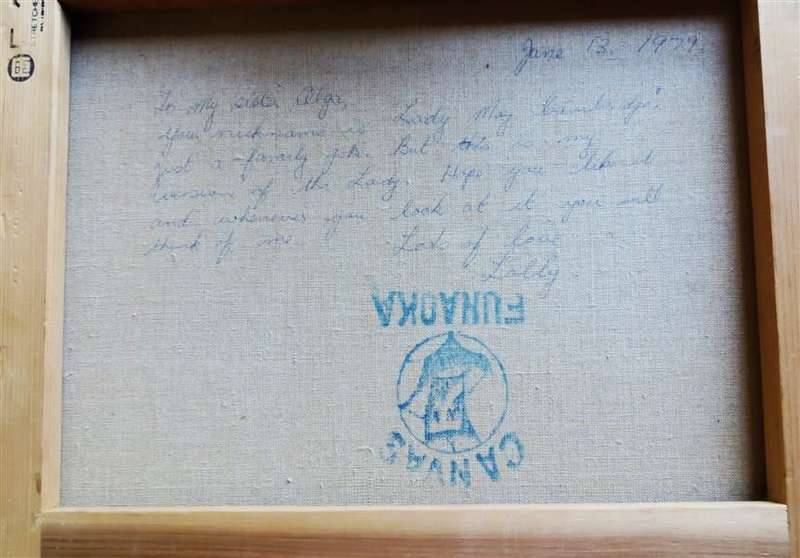 STRETCHE
June 13. 1979.
To my sister Olga,
Your nickname is Lady May
just a family joke. But this is my
version of the Lady. Hope you like it
and whenever you look at it you will
think of me. Lots of love
Lolly.
FUNAOKA
CANVAS